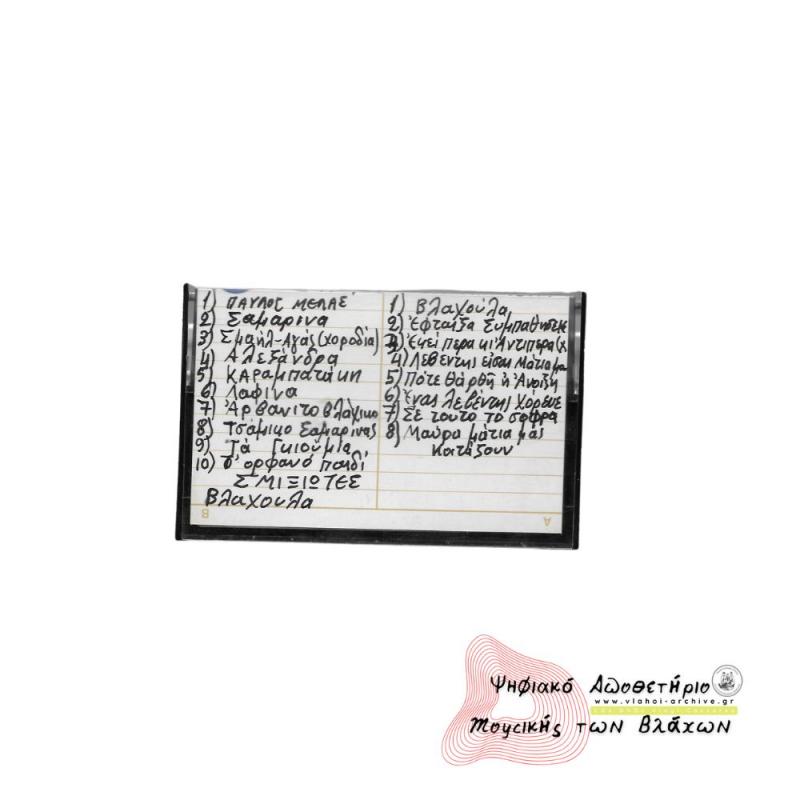 1) ΠΑΥΛΟΣ ΜΕΛΑΣ
2) Σαμαρινα
3) Σμαήλ-Αγάς (χοροδία)
4) Αλεξάνδρα
5) ΚΑΡαμπατάκη
6) Λαφίνα
7) Άρβανιτοβλάχικο
8) Τσάμικο Σαμαρίνας
9) Τά Γκιούμια
10) ορφανό παιδί
ΣΜΙΞΙΩΤΕΣ
Βλαχουλα
B
1) Βλαχούλα
2) Έφταιξα Συμπαθήστε
3) Έκεί πέρα κι Άντιπέρα (χ
4) Λεβεντης είσαι Μάτια μα
5) Πότε θάρθη ή Άνοιξη
6) Ένας λεβέντης Χόρευε
7) Σε τούτο τό σοφρα
8) Μαύρα μάτια μας
κατάζουν
A
Ψηφιακό Αποθετήριο
www.vlahoi-archive.gr
Μουσικής των Βλάχων